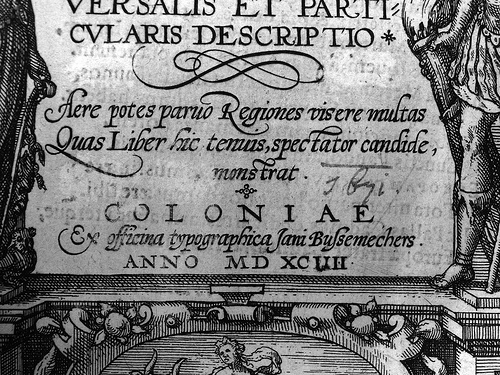 VERSALIS ET PARTI-
CVLARIS DESCRIPTIO *
Aere potes paruo Regiones visere multas
Quas Liber hic tenuis, spectator candide,
monstrat.
COLONIAE
Ex officina typographica Jani Bussemechers.
ANNO MD XCIIII